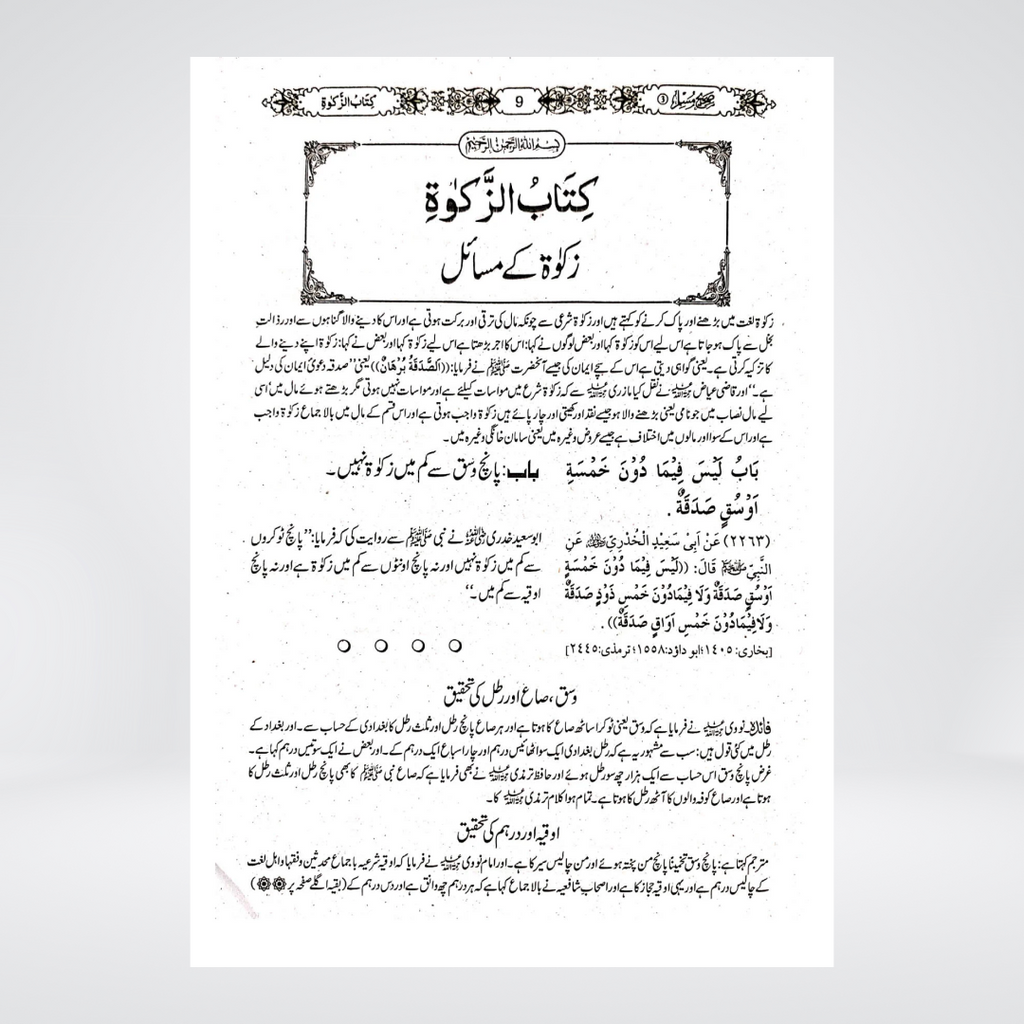 صحیح مسلم ③
9
كِتَابُ الزَّكٰوةِ
بِسْمِ اللهِ الرَّحْمٰنِ الرَّحِيْمِ
كِتَابُ الزَّكٰوةِ
زکوٰة کے مسائل
زکوٰة لغت میں بڑھنے اور پاک کرنے کو کہتے ہیں اور زکوٰة شرعی سے چونکہ مال کی ترقی اور برکت ہوتی ہے اور اس کا دینے والا گناہوں سے اور رذالتِ
بخل سے پاک ہو جاتا ہے اس لیے اس کو زکوٰة کہا اور بعض لوگوں نے کہا: اس کا اجر بڑھتا ہے اس لیے زکوٰة کہا اور بعض نے کہا: زکوٰة اپنے دینے والے
کا تزکیہ کرتی ہے۔ یعنی گواہی دیتی ہے اس کے سچے ایمان کی جیسے آنحضرت ﷺ نے فرمایا: ((اَلصَّدَقَةُ بُرْهَانٌ)) یعنی ”صدقہ دعویٰ ایمان کی دلیل
ہے۔“ اور قاضی عیاض رحمہ اللہ نے نقل کیا مازری رحمہ اللہ سے کہ زکوٰة شرع میں مواسات کیلئے ہے اور مواسات نہیں ہوتی مگر بڑھتے ہوئے مال میں اسی
لیے مال نصاب میں جو نامی یعنی بڑھنے والا ہو جیسے نقد اور کھیتی اور چار پائے ہیں زکوٰة واجب ہوتی ہے اور اس قسم کے مال میں بالا جماع زکوٰة واجب
ہے اور اس کے سوا اور مالوں میں اختلاف ہے جیسے عروض وغیرہ میں یعنی سامان خانگی وغیرہ میں۔
بَابُ لَيْسَ فِيْمَا دُوْنَ خَمْسَةِ
اَوْسُقٍ صَدَقَةٌ .
باب: پانچ وسق سے کم میں زکوٰة نہیں۔
(٢٢٦٣) عَنْ اَبِىْ سَعِيْدِ الْخُدْرِيِّ رضی اللہ عنہ عَنِ
النَّبِيِّ ﷺ قَالَ: ((لَيْسَ فِيْمَا دُوْنَ خَمْسَةِ
اَوْسُقٍ صَدَقَةٌ وَلَا فِيْمَادُوْنَ خَمْسِ ذَوْدٍ صَدَقَةٌ
وَلَافِيْمَادُوْنَ خَمْسِ اَوَاقٍ صَدَقَةٌ)) .
[بخاری: ١٤٠٥؛ ابو داؤد: ١٥٥٨؛ ترمذی: ٢٤٤٥]
ابوسعید خدری رضی اللہ عنہ نے نبی ﷺ سے روایت کی کہ فرمایا: ”پانچ ٹوکروں
سے کم میں زکوٰة نہیں اور نہ پانچ اونٹوں سے کم میں زکوٰة ہے اور نہ پانچ
اوقیہ سے کم میں۔“
وسق، صاع اور رطل کی تحقیق
فائدہ: نووی رحمہ اللہ نے فرمایا ہے کہ وسق یعنی ٹوکرا ساٹھ صاع کا ہوتا ہے اور ہر صاع پانچ رطل اور ثلث رطل کا بغدادی کے حساب سے۔ اور بغداد کے
رطل میں کئی قول ہیں: سب سے مشہور یہ ہے کہ رطل بغدادی ایک سو اٹھائیس درہم اور چار اسباع ایک درہم کے۔ اور بعض نے ایک سو تیس درہم کہا ہے۔
غرض پانچ وسق اس حساب سے ایک ہزار چھ سو رطل ہوئے اور حافظ ترمذی رحمہ اللہ نے بھی فرمایا ہے کہ صاع نبی ﷺ کا بھی پانچ رطل اور ثلث رطل کا
ہوتا ہے اور صاع کوفہ والوں کا آٹھ رطل کا ہوتا ہے۔ تمام ہوا کلام ترمذی رحمہ اللہ کا۔
اوقیہ اور درہم کی تحقیق
مترجم کہتا ہے: پانچ وسق تخمینًا پانچ من پختہ ہوئے اور من چالیس سیر کا ہے۔ اور امام نووی رحمہ اللہ نے فرمایا کہ اوقیہ شرعیہ با جماع محدثین و فقہا و اہل لغت
کے چالیس درہم ہے اور یہی اوقیہ حجاز کا ہے اور اصحاب شافعیہ نے بالا جماع کہا ہے کہ ہر درہم چھ دانق ہے اور دس درہم کے (بقیہ اگلے صفحہ پر)